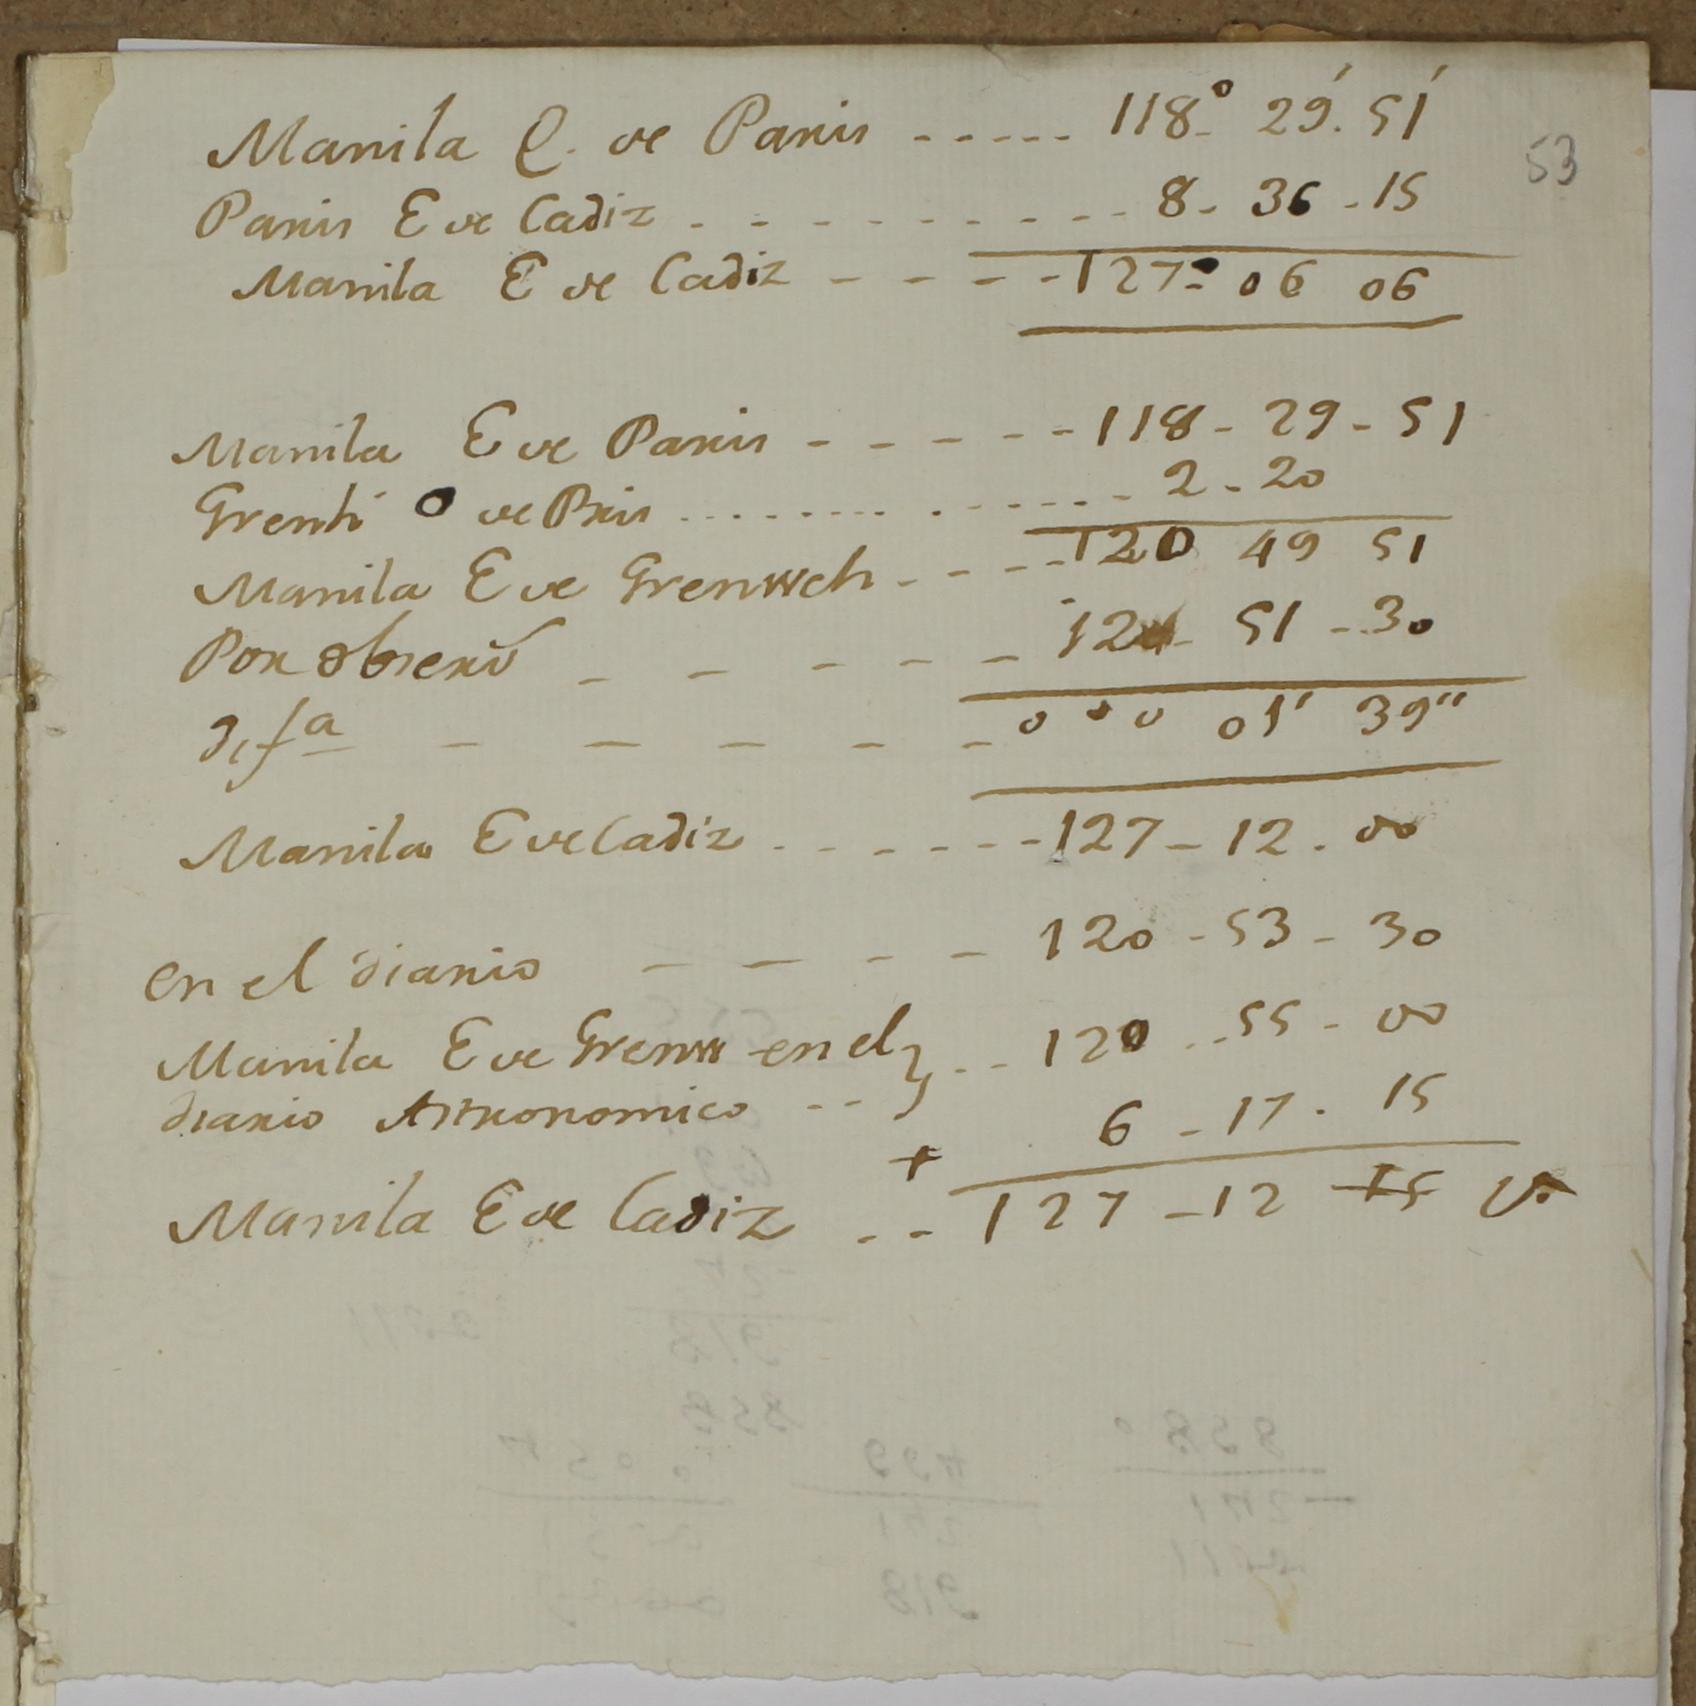 Manila E. de Paris ----- 118° 29'. 51'
53
Paris E de Cadiz - - - - - - - - - 8- 36 -15
Manila E de Cadiz - - - - - 127° 06 06
Manila E de Paris - - - - - - 118 - 29 - 51
Grenh O de Pris ................ 2 - 20
Manila E de Grenwch - - - - - 120 49 51
Por obserň - - - - - 120 - 51 - 30
difa - - - - - - 0 0 0 01' 39"
Manila E de Cadiz - - - - - - - 127 - 12 . 00
en el diario - - - - 120 - 53 - 30
Manila E de Grenw en el } - - 120 - 55 - 00
diario Astronomico - - 6 - 17 . 15
+
Manila E de Cadiz - - 127 - 12 15